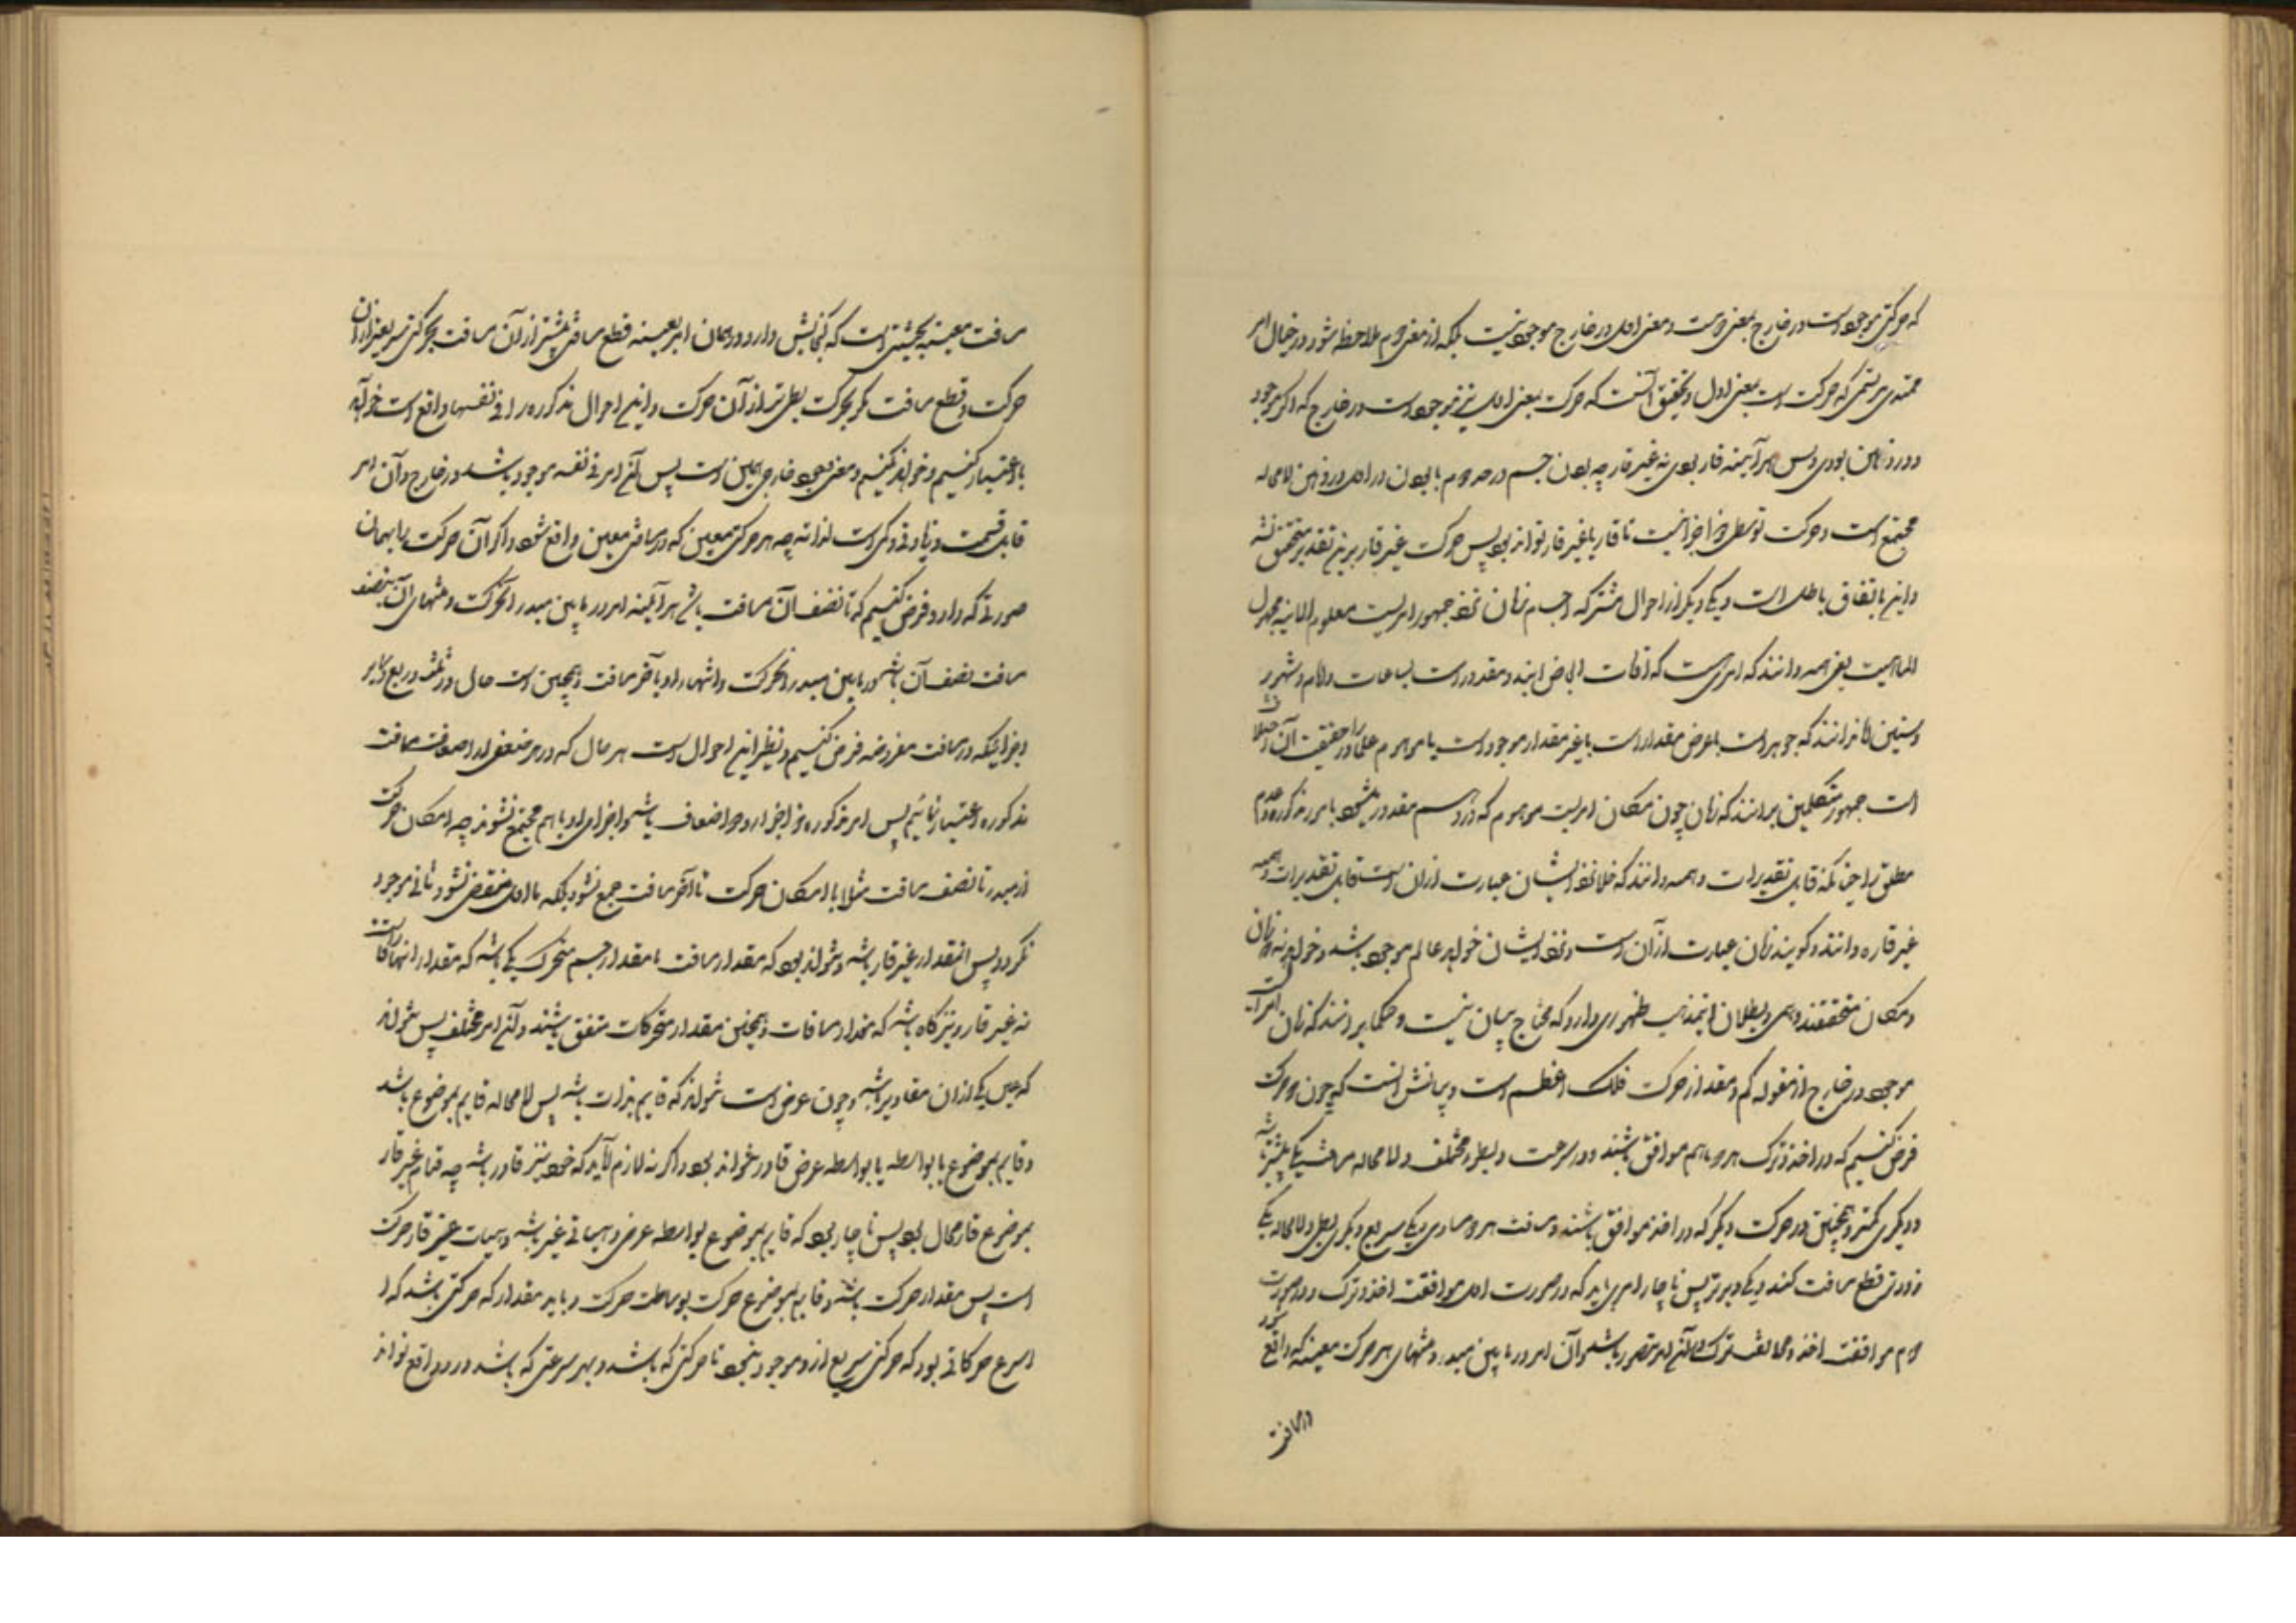 که حرکتی موجود است در خارج بمعنی دوم است و معنی اول در خارج موجود نیست بلکه از معنی دوم ملاحظه شود در خیال امر
ممتدی مرتسمی که حرکت است بمعنی اول و تحقیق آنست که حرکت بمعنی اول نیز موجود است در خارج که اگر موجود
در ذهن بودی و بس هر آینه قار بودی نه غیر قار چه بودن جسم در حد دوم با بودن در اول در ذهن لا محاله
مجتمع است و حرکت توسطی را اجزا نیست تا قار یا غیر قار تواند بود پس حرکت غیر قار برین تقدیر متحقق نشد
و این باتفاق باطل است و یکی دیگر از احوال مشترکه اجسام زمان نزد جمهور امریست معلوم الانیه مجهول
الماهیت یعنی همه دانند که امری هست که اوقات ابعاض اویند و مقدور است بساعات و ایام و شهور
و سنین اما ندانند که جوهر است یا عرض مقدار است یا غیر مقدار موجود است یا موهوم علما را در حقیقت آن اختلاف
است جمهور متکلمین برانند که زمان چون مکان امریست موهوم که در وهم مقدور میشود با مور مذکوره و عدم
مطلق را چنانکه قابل تقدیرات وهمیه دانند که خلا نزد ایشان عبارت از آن است قابل تقدیرات وهمیه
غیر قاره دانند و گویند زمان عبارت از آن است و نزد ایشان خواه عالم موجود باشد و خواه نه زمان
و مکان متحققند وهمی و بطلان این مذهب ظهوری دارد که محتاج ببیان نیست و حکما برانند که زمان امریست
موجود در خارج از مقوله کم و مقدار حرکت فلک اعظم است و بیانش آنست که چون دو حرکت
فرض کنیم که در اخذ و ترک هر دو با هم موافق باشند و در سرعت و بطو مختلف و لا محاله مسافت یکی بیشتر باشد
و دیگری کمتر و همچنین دو حرکت دیگر که در اخذ موافق باشند و مسافت هر دو مساوی و یکی سریع و دیگری بطی و لا محاله یکی
زودتر قطع مسافت کند و یکی دیرتر پس ناچار امری باید که در صورت اول موافقت اخذ و ترک و در صورت
دوم موافقت اخذ و مخالفت ترک در آن امر متصور باشد و آن امر در ما بین مبدء و منتهای هر حرکت معینه که واقع شود
در مسافت
مسافت معینه بحیثیتی است که گنجایش دارد در همان امر بعینه قطع مسافتی بیشتر از آن مسافت بحرکتی سریعتر از آن
حرکت و قطع مسافت کمتر بحرکت بطی‌تر از آن حرکت و این احوال مذکوره را فی نفسها واقع است خواه
ما اعتبار کنیم و خواه نکنیم و معنی موجود خارجی همین است پس آن امر فی نفسه موجود باشد در خارج و آن امر
قابل قسمت و زیادتی و کمی است لذاته چه هر حرکتی معین که در مسافتی معین واقع شود اگر آن حرکت را بهمان
صورتی که دارد فرض کنیم که تا نصف آن مسافت باشد هر آینه امر در ما بین مبدء آن حرکت و منتهای آن بنصف
مسافت نصف آن باشد در ما بین مبدء آن حرکت و انتهاء او بآخر مسافت و همچنین است حال در ثلث و ربع و سایر
اجزائیکه در مسافت مفروضه فرض کنیم و نظیر این احوال است هر حال که در هر ضعفی از اضعاف مسافت
مذکوره اعتبار نمائیم پس امر مذکور ذو اجزا و ذو اضعاف باشد و اجزای او با هم مجتمع نشوند چه امکان حرکت
از مبدء تا نصف مسافت مثلا با امکان حرکت تا آخر مسافت جمع نشود بلکه تا اول منقضی نشود ثانی موجود
نگردد پس این مقدار غیر قار باشد و نتواند بود که مقدار مسافت یا مقدار جسم متحرک یکی باشد که مقدار اینها قار است
نه غیر قار و نیز گاه باشد که مقدار مسافات و همچنین مقدار متحرکات متفق باشند و آن امر مختلف پس نتواند
که عین یکی از آن مقادیر باشد و چون عرض است نتواند که قایم بذات باشد پس لا محاله قایم بموضوع باشد
و قایم بموضوع یا بواسطه یا بی واسطه عرض قار نتواند بود و اگر نه لازم آید که خود نیز قار باشد چه قیام غیر قار
بموضوع قار محال بود پس ناچار بود که قایم بموضوع بواسطه عرض و هیاتی غیر باشد و هیات غیر قار حرکت
است پس مقدار حرکت باشد و قایم بموضوع حرکت بوساطت حرکت و باید مقدار که حرکتی باشد که او
اسرع حرکاتی بود که حرکتی سریع‌تر از او موجود نبود تا حرکتی که باشد و بهر سرعتی که باشد در او واقع تواند